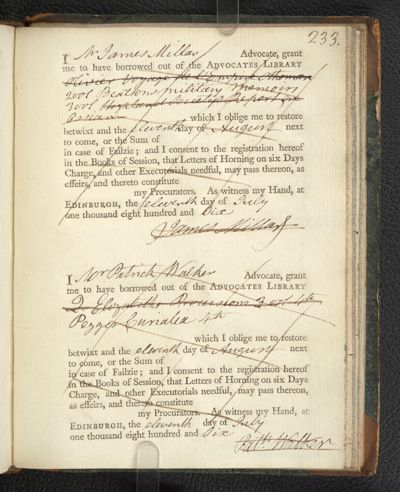 233.
I Mr James Millar Advocate, grant
me to have borrowed out of the ADVOCATES LIBRARY
Olivier Voyage dans l'Empire Othoman
2 vol Beatsons military memoirs
3 vol
which I oblige me to restore
betwixt and the eleventh day of August next
to come, or the Sum of
in case of Failzie; and I consent to the registration hereof
in the Books of Session, that Letters of Horning on six Days
Charge, and other Executorials needful, may pass thereon, as
effeirs, and thereto constitute
my Procurators. As witness my Hand, at
EDINBURGH, the eleventh day of July
one thousand eight hundred and Six
James Millar
I Mr Patrick Walker Advocate, grant
me to have borrowed out of the ADVOCATES LIBRARY
Q. Elizabeths Processions 3 vol 4to
Poggii 4to
which I oblige me to restore
betwixt and the eleventh day of August next
to come, or the Sum of
in case of Failzie; and I consent to the registration hereof
in the Books of Session, that Letters of Horning on six Days
Charge, and other Executorials needful, may pass thereon,
as effeirs, and thereto constitute
my Procurators. As witness my Hand, at
EDINBURGH, the eleventh day of July
one thousand eight hundred and Six
Patk. Walker